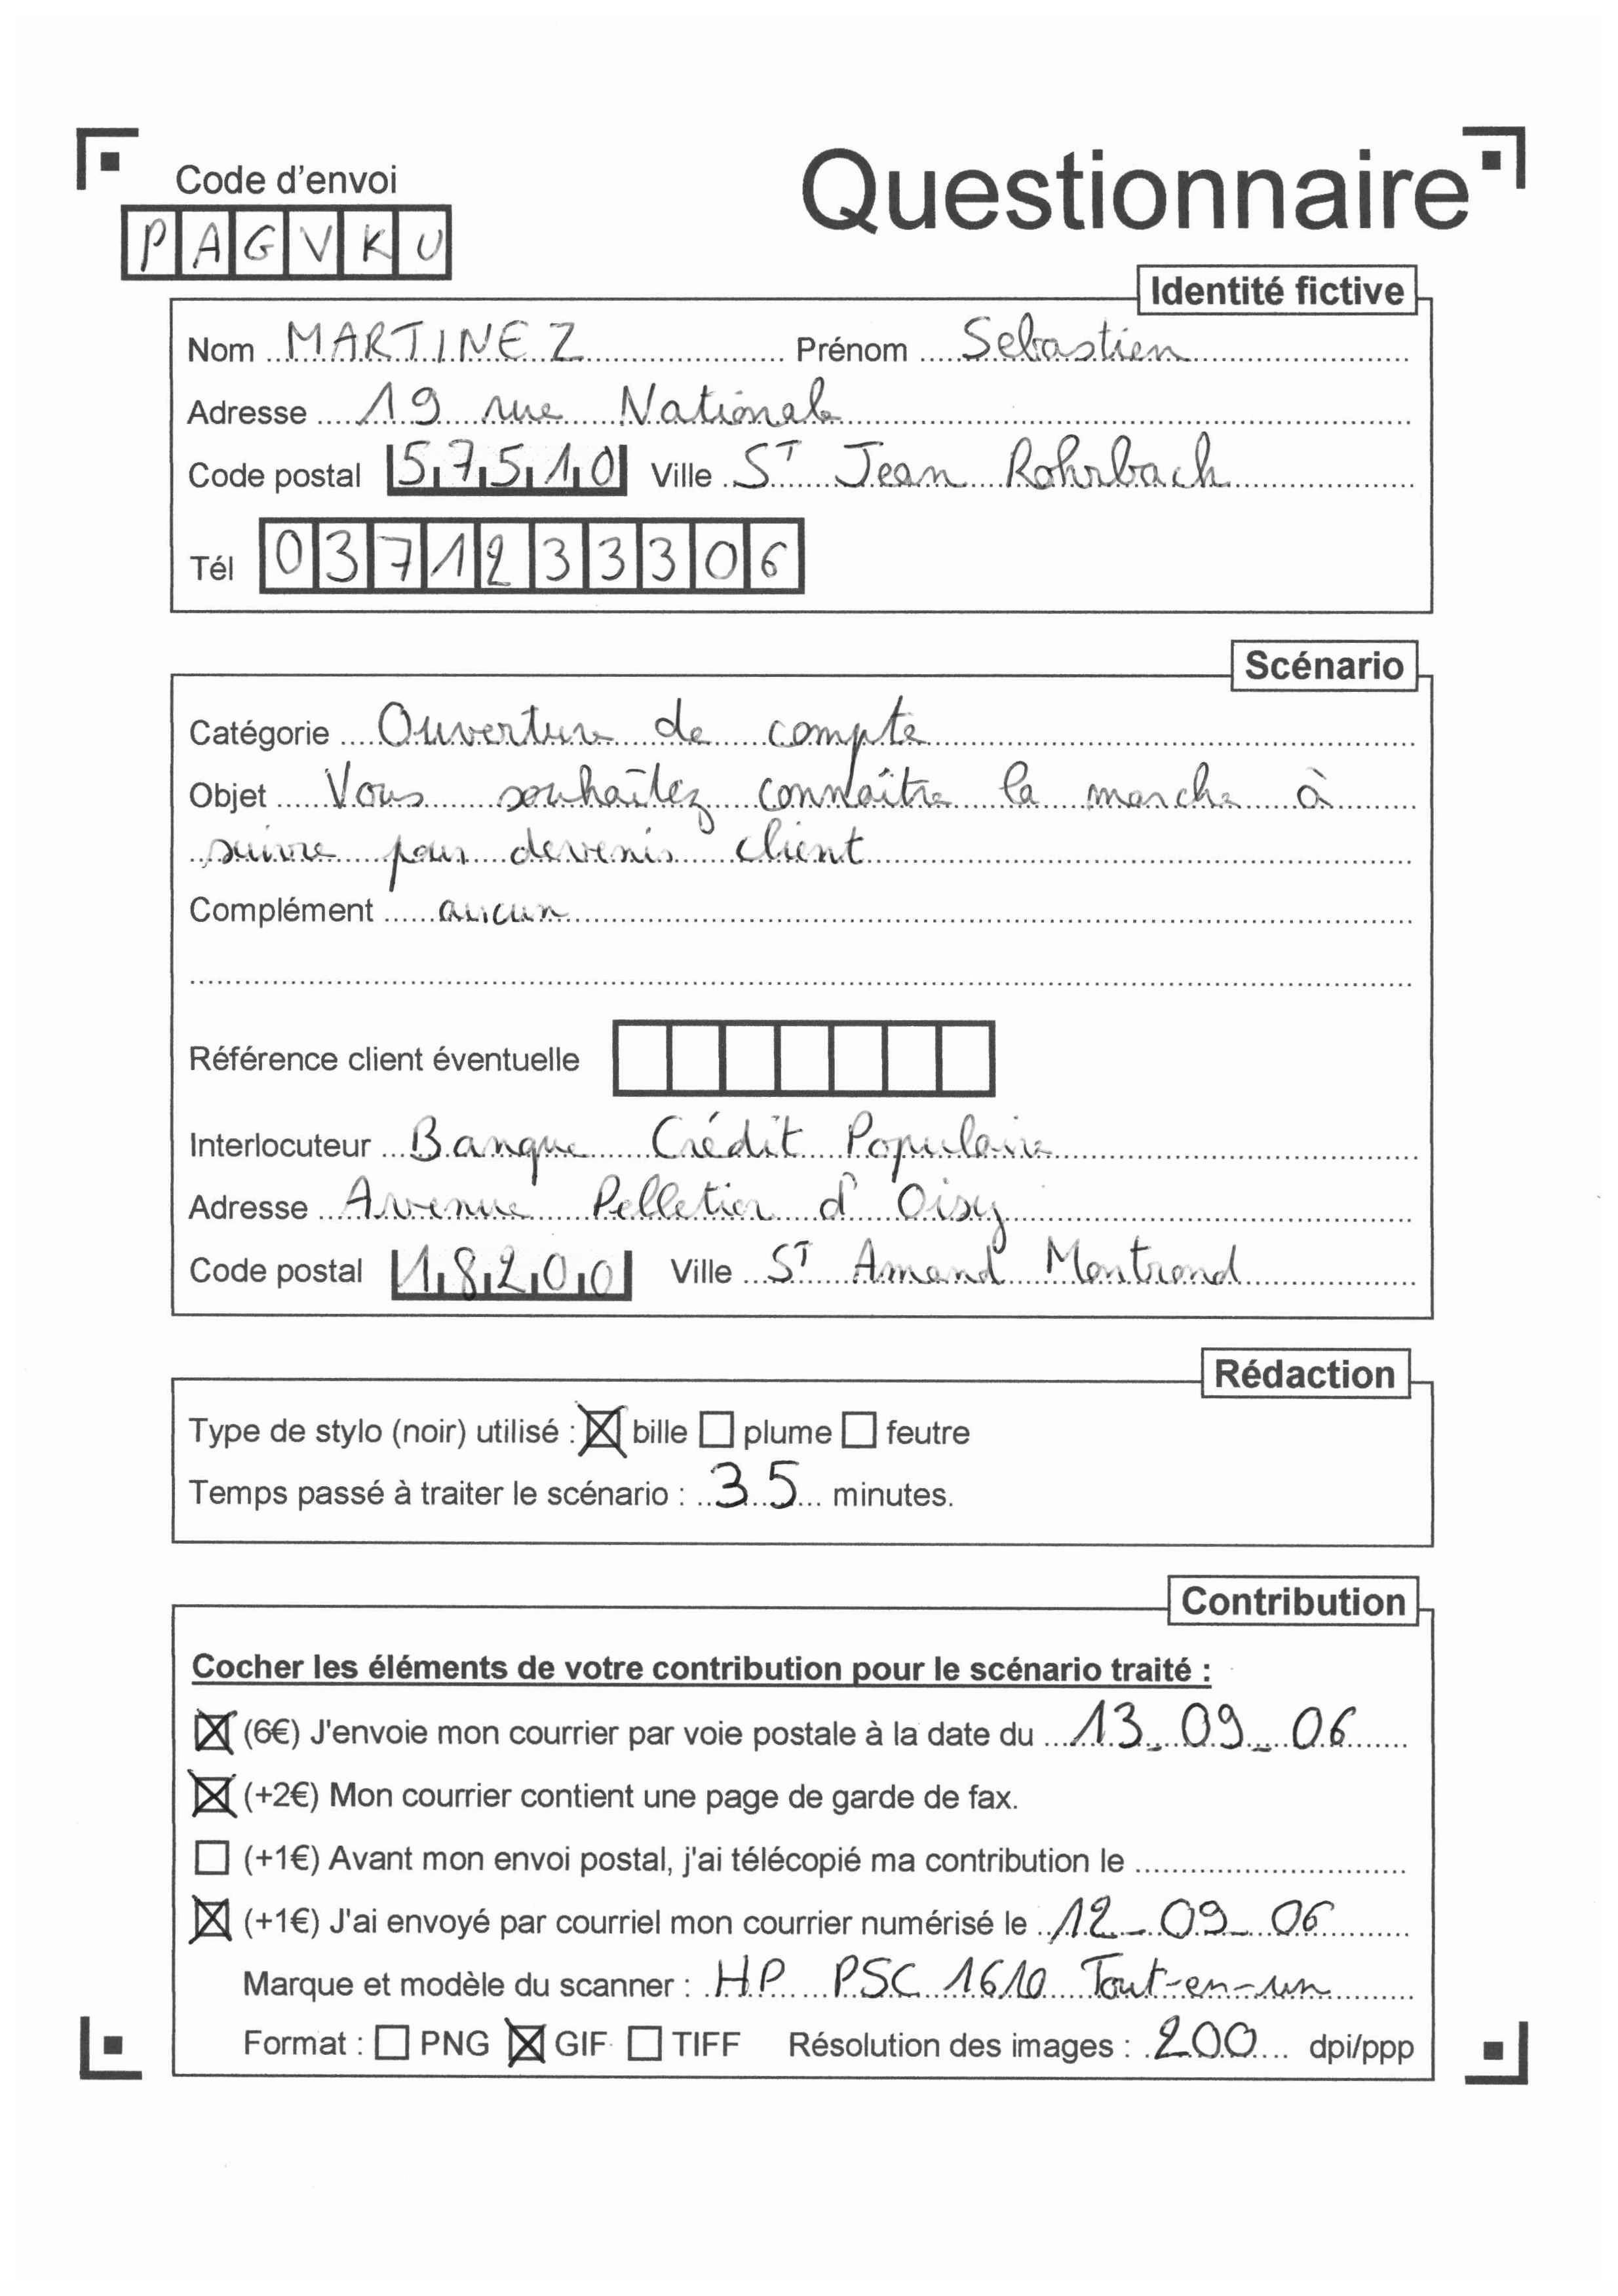 Code d'envoi
Questionnaire
PAGVKU
Identité fictive
Nom MARTINEZ Prénom Sebastien
Adresse 19 rue Nationale
Code postal 57510 Ville ST Jean Rohrbach
Tél 0371233306
Scénario
Catégorie Ouverture de compte
Objet Vous souhaîtez connaître la marche à
suivre pour devenir client
Complément aucun
Référence client éventuelle
Interlocuteur Banque Crédit Populaire
Adresse Avenue Pelletier d'Oisy
Code postal 18200 Ville ST Amand Montrond
Rédaction
Type de stylo (noir) utilisé : bille plume feutre
Temps passé à traiter le scénario : 35 minutes.
Contribution
Cocher les éléments de votre contribution pour le scénario traité :
(6€) J'envoie mon courrier par voie postale à la date du 13_09_06
(+2€) Mon courrier contient une page de garde de fax.
(+1€) Avant mon envoi postal, j'ai télécopié ma contribution le
(+1€) J'ai envoyé par courriel mon courrier numérisé le 12_09_06
Marque et modèle du scanner : HP PSC 1610 Tout-en-un
Format : PNG GIF TIFF Résolution des images : 200 dpi/ppp